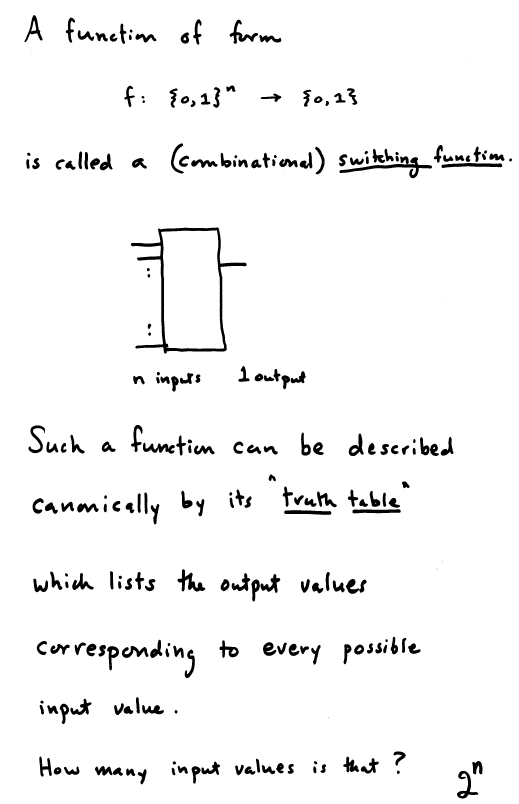 A function of form
f: {0,1}ⁿ → {0,1}
is called a (combinational) switching function.
:
:
n inputs 1 output
Such a function can be described
canonically by its "truth table"
which lists the output values
corresponding to every possible
input value.
How many input values is that? 2ⁿ